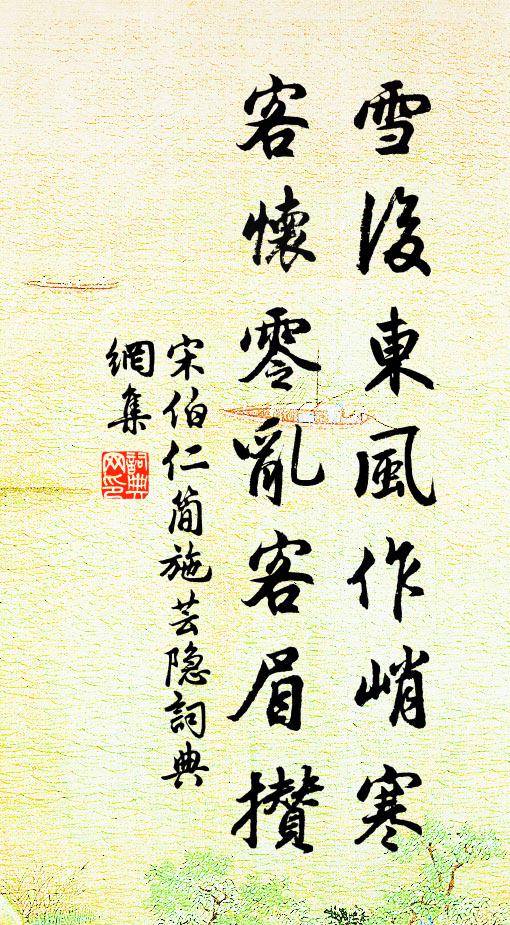 雪後東風作峭寒
客懷零亂客眉攅
宋伯仁簡施芸隐詞典
網集
詞典網印